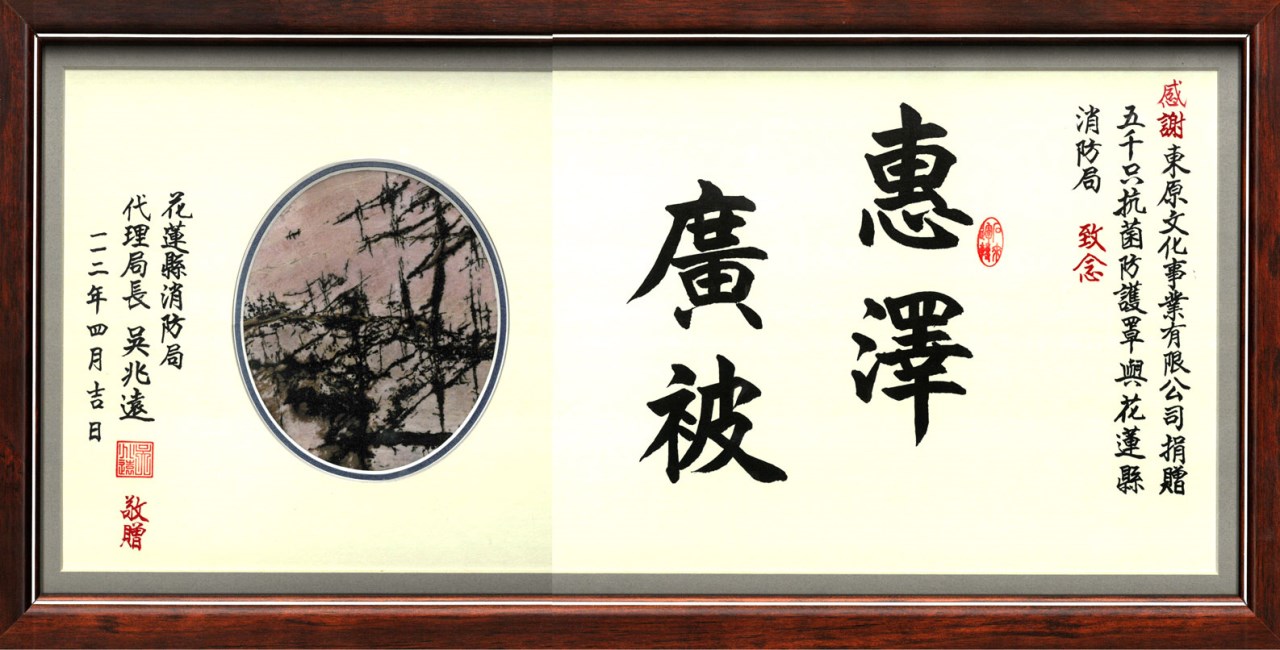 感謝東原文化事業有限公司捐贈
五千只抗菌防護罩與花蓮縣
消防局 致念
惠澤
廣被
花蓮縣消防局
代理局長 吳兆遠 敬贈
一一二年四月吉日